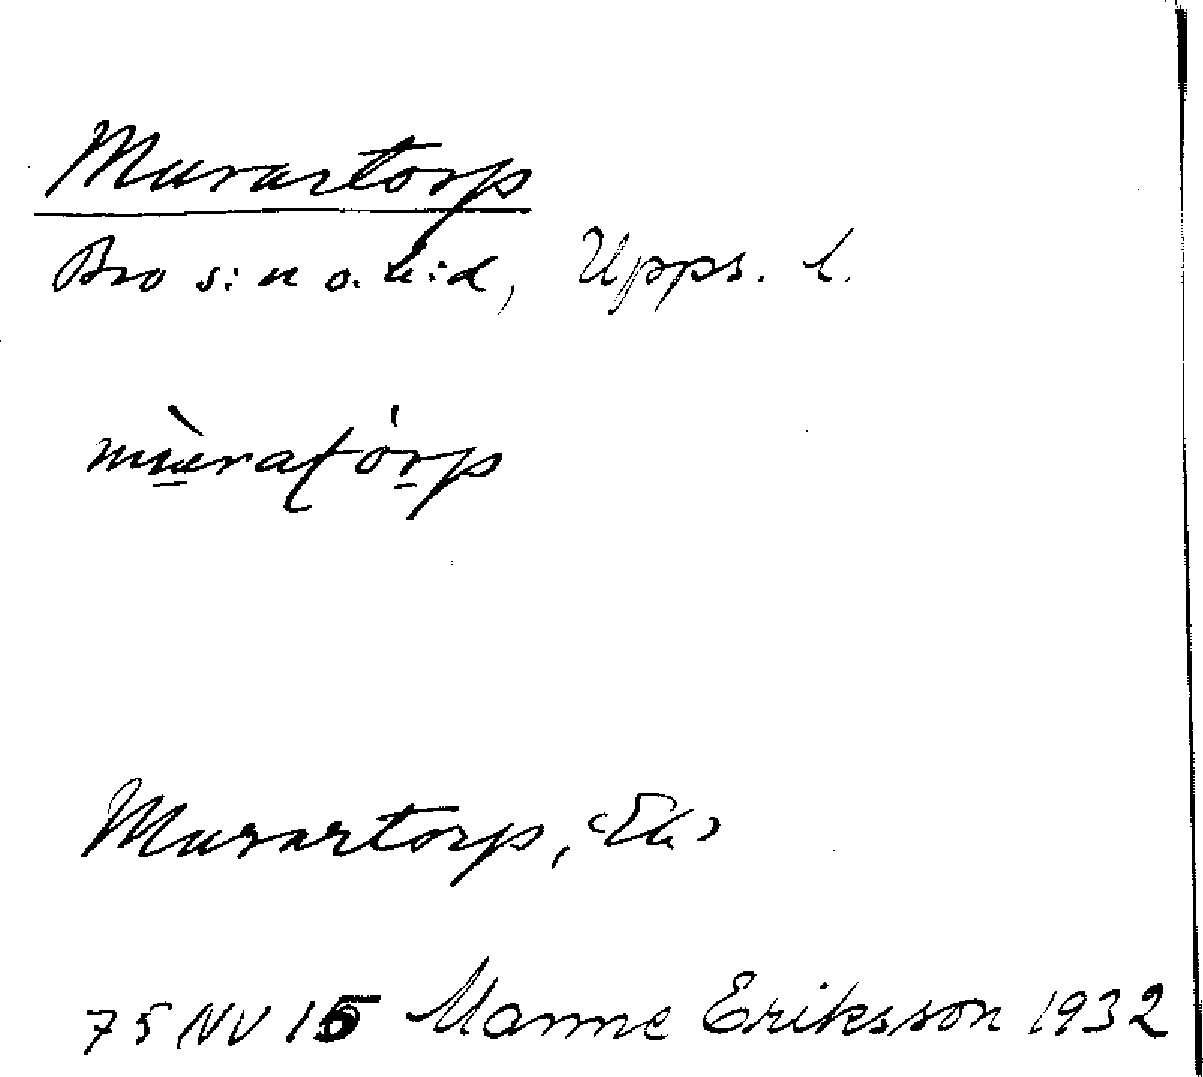 Murartorp
Bro s:n o. h:d, Upps. l.
mùratórp
Murartorp, <Ek>
75 NV 15 Manne Eriksson 1932